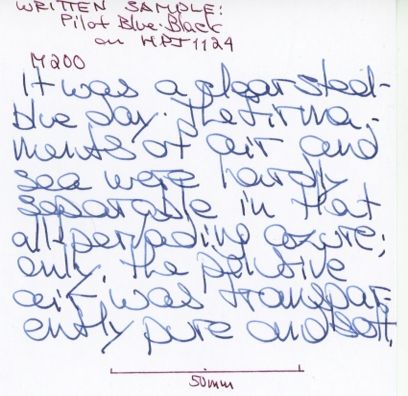 WRITTEN SAMPLE:
Pilot Blue-Black
on HPJ1124
M200
It was a clear steel-
blue day. The firma-
ments of air and
sea were hardly
separable in that
all-pervading azure;
only, the pensive
air was transpar-
ently pure and soft,
50mm